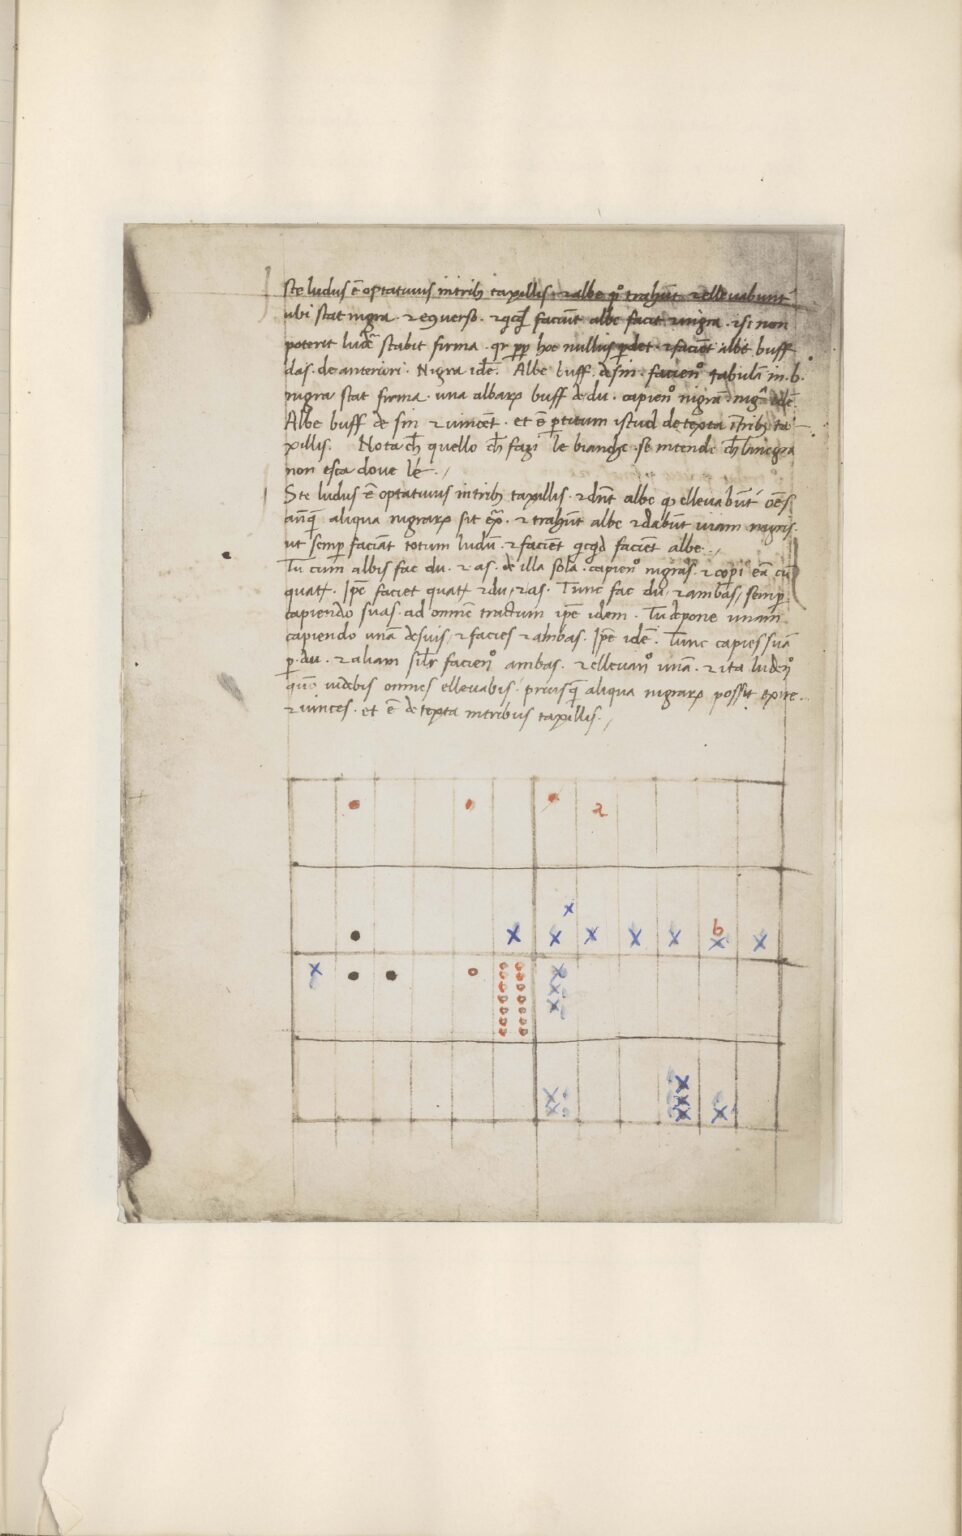 Ste ludus ē optatiuus in trib; taxillis · ⁊ albe pº trahūt ⁊ ellevabunt
ubi stat nigra · ⁊ eqverso · ⁊ faciūt albe facit ⁊ nigra · ⁊ si non
poterit stabit firma · qr pp hoc nullus pdet · ⁊ faciēt albe buff
das · de anteriori · Nigra idē · Albe buff · de sin · facienº tabulā in · b ·
nigra stat firma · una albaꝝ buff de du · capienº nigrā · nigª idē
Albe buff de sin ⁊ vincēt · et ē ptitum istud de texta ī trib; ta
xillis · Nota ch quello ch fazi le bianche · se intende ch la negra
non esca dove l'e · /
Ste ludus ē optatiuus in trib; taxillis · ⁊ dn̄t albe qꝫ ellevabūt oēs
an̄q aliqua nigraꝝ sit exª · ⁊ trahūt albe ⁊ dabūt viam nigris
ut semp faciāt totum ludū · ⁊ faciēt qcqd faciēt albe · /
Tu cum albis fac du · ⁊ · as · de illa sola · capienº nigras · ⁊ copi eā cū
quatt · Ipē faciet quatt ⁊ du, ⁊ as · Tunc fac du, ⁊ ambas, semp
capiendo suas · ad omnē tractum ipē idem · Tu depone unam
capiendo unā de suis, ⁊ facies ⁊ ambas · Ipē idē · Tunc capies suā
p · du · ⁊ aliam silr facienº ambas · ⁊ ellevanº unā · ⁊ ita ludenº
videbis omnes ellevabis · priusq aliqua nigraꝝ possit exire ·
⁊ vinces · et ē de texta in tribus taxillis · /
a
b